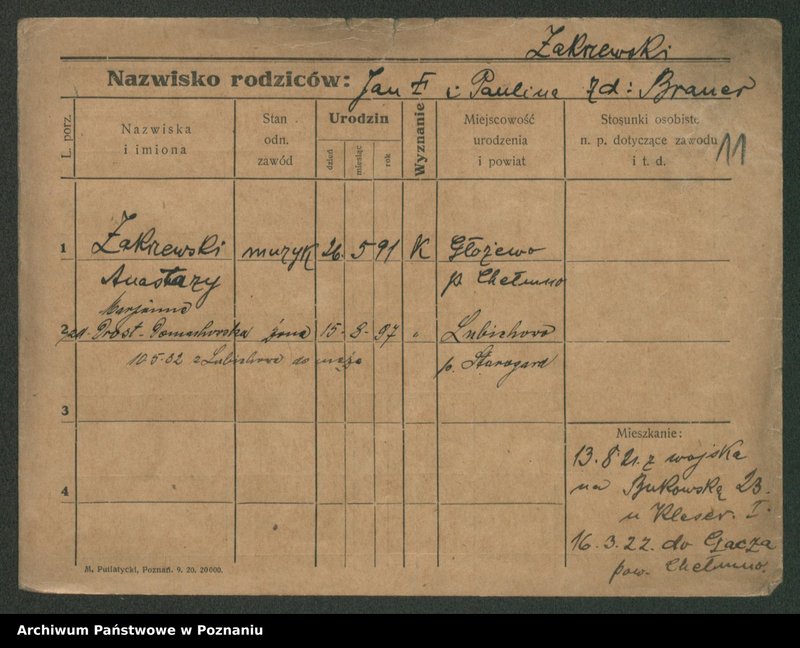 Zakrzewski
Nazwisko rodziców: Jan † i Paulina zd: Brauer
L. porz.
Nazwiska
i imiona
Stan
odn.
zawód
Urodzin
dzień
miesiąc
rok
Wyznanie
Miejscowość
urodzenia
i powiat
Stosunki osobiste
n. p. dotyczące zawodu
i t. d.
11
1 Zakrzewski muzyk 26. 5 91 K Głożewo
Anastazy p. Chełmno
Marjanna
2 zd. Prost-Domachowska żona 15-8-97 " Lubichowo
10.5.22 z Lubichowo do męża p. Starogard
3
4
Mieszkanie:
13.8.21. z wojska
na Bukowską 23.
u I.
16.3.22. do Gacza
pow. Chełmno.
M. Putiatycki, Poznań. 9. 20. 20000.
Archiwum Państwowe w Poznaniu